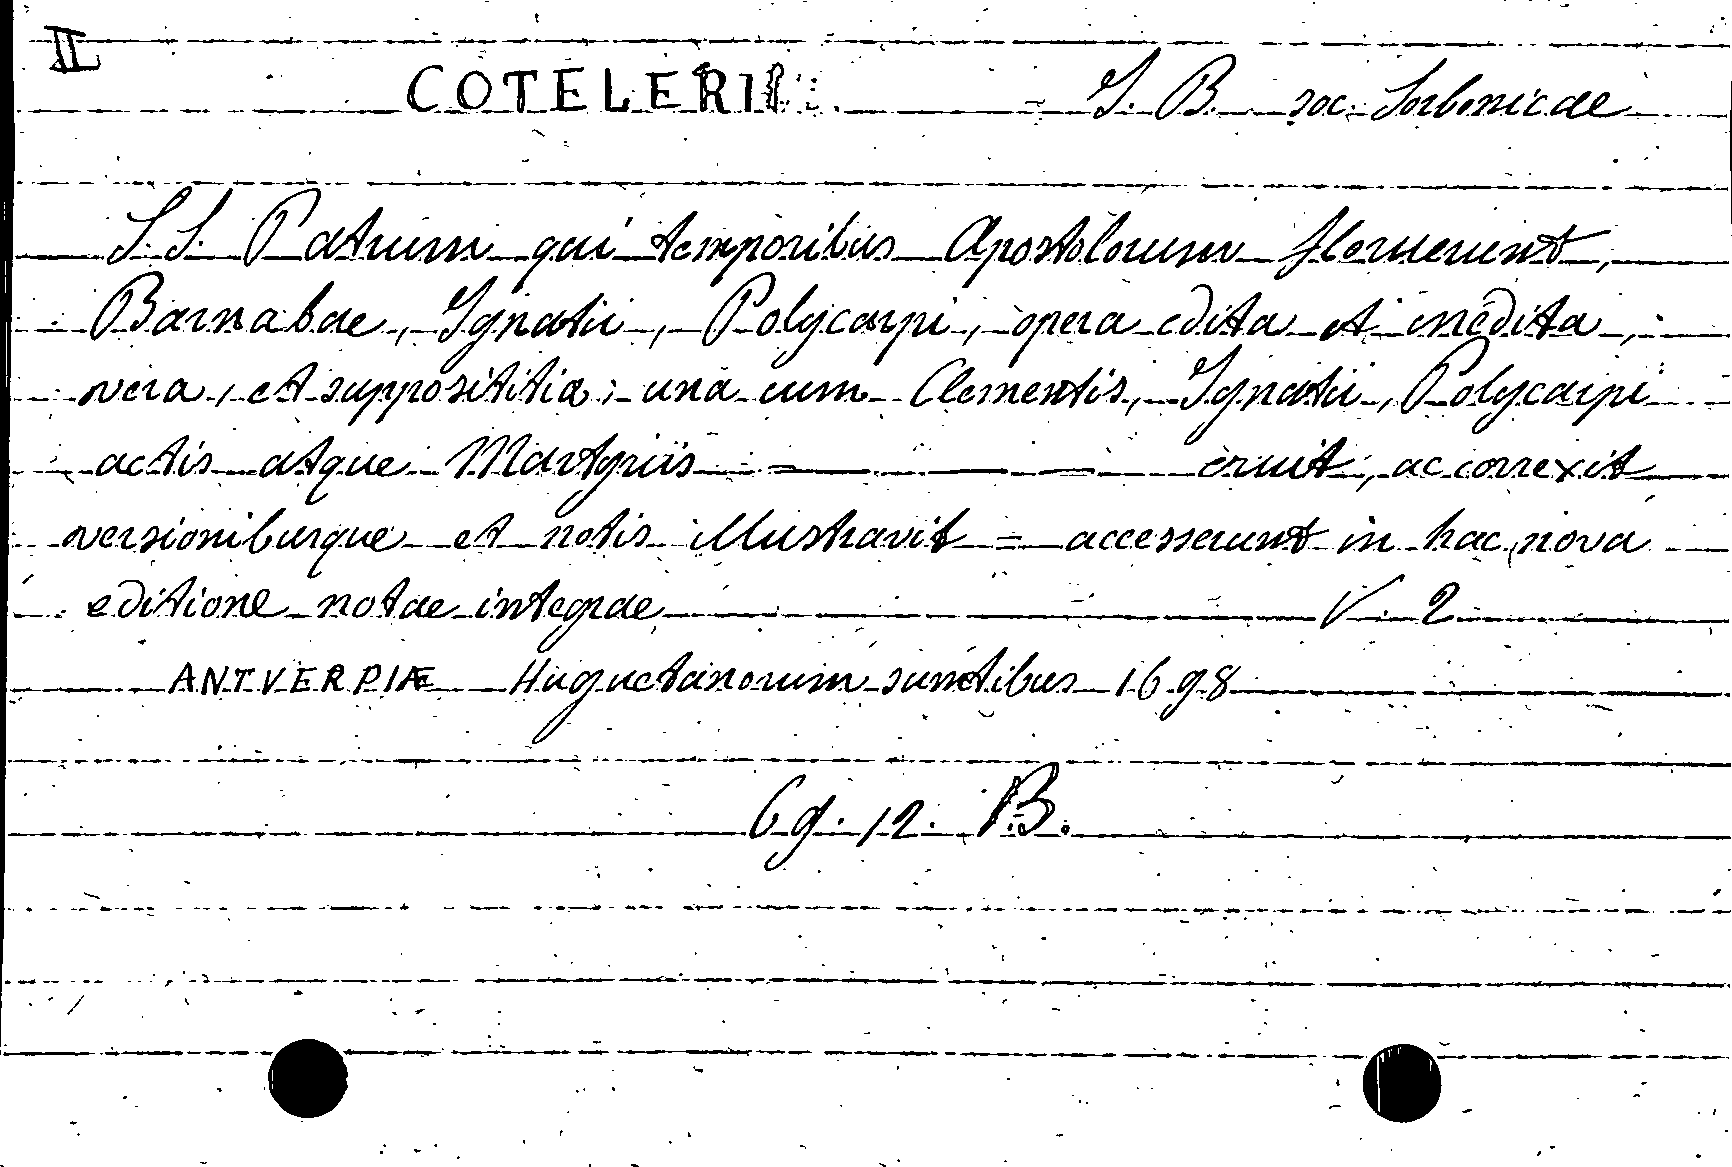 II
COTELERII - J. B. soc. Sorbonicae
S. S. Patrum qui temporibus Apostolorum floruerunt,
Barnabae, Ignatii, Polycarpi, opera edita et inedita,
vera, et supposititia; una cum Clementis, Ignatii, Polycarpi
actis atque Martyriis — — — eruit, ac correxit
versionibusque et notis illustravit = accesserunt in hac nova
editione notae integrae V. 2
ANTVERPIÆ Huguetanorum sumtibus 1698
6g. 12. B.